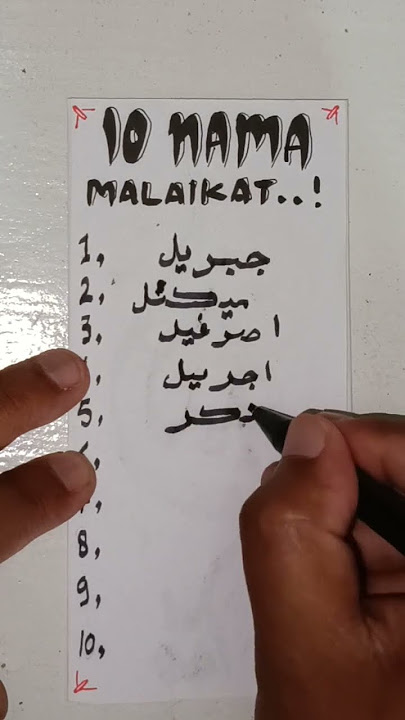 10 NAMA
MALAIKAT..!
1, جبريل
2, ميكئل
3, اصرفيل
, اجربيل
5, نكر
,
7,
8,
9,
10,